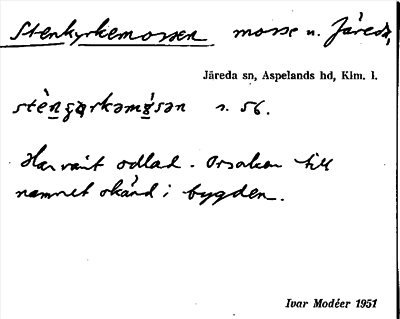 Stenkyrkemossen mosse u. Järeda,
Järeda sn, Aspelands hd, Klm. l.
s. 56.
Har varit odlad. Orsaken till
namnet okänd i bygden.
Ivar Modéer 1951